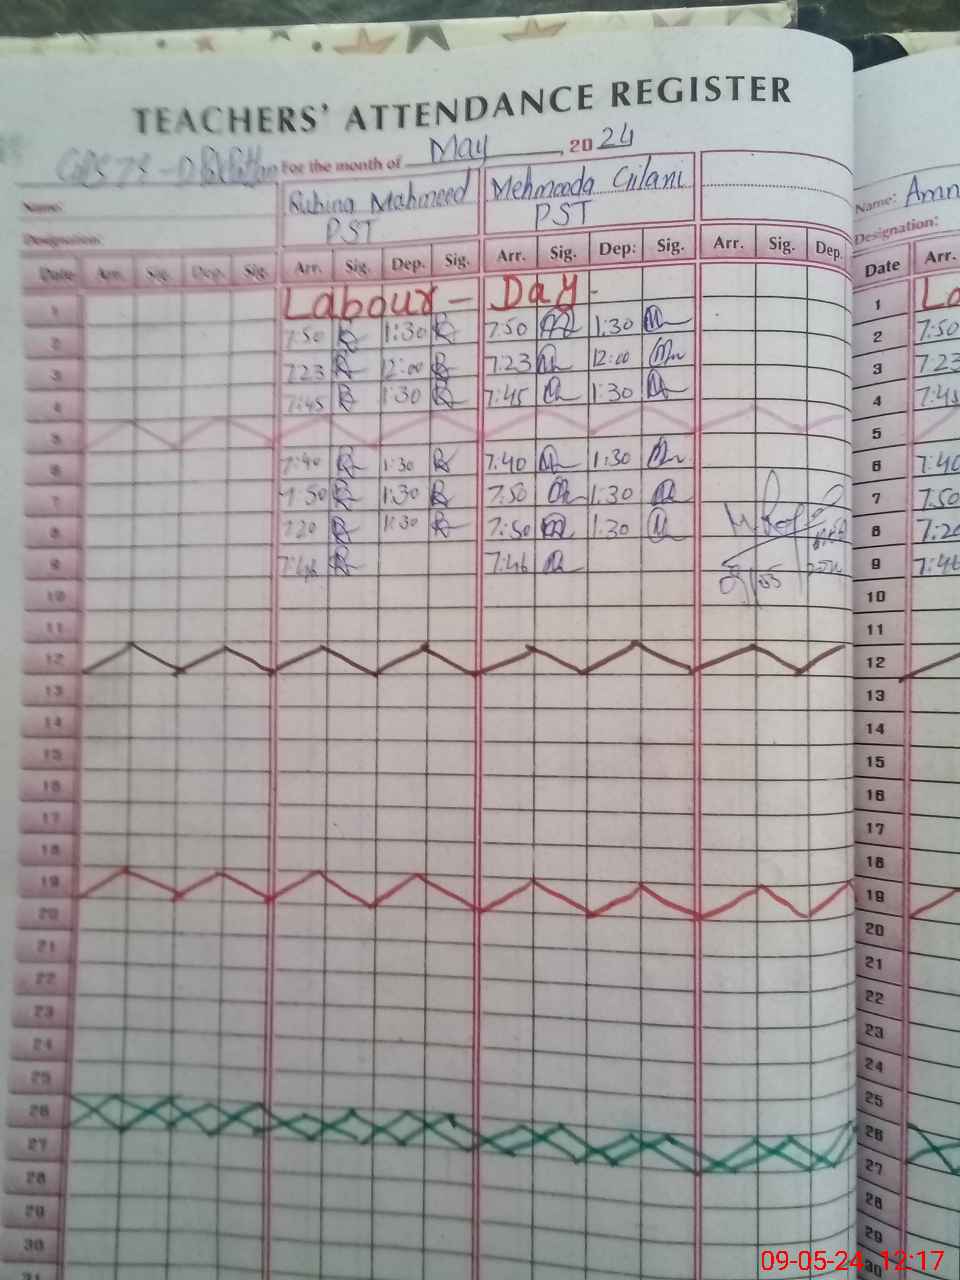 TEACHERS' ATTENDANCE REGISTER
For the month of May, 2024
Name: Rubina Mahmeed Mehmooda Gilani Name: Amn
Designation: PST PST Designation:
Date Arr. Sig. Dep. Sig. Arr. Sig. Dep. Sig. Arr. Sig. Dep: Sig. Arr. Sig. Dep. Date Arr.
1 Labour - Day - 1 La
2 7:50 1:30 7:50 1:30 2 7:50
3 7:23 12:00 7:23 12:00 3 7:23
4 7:45 1:30 7:45 1:30 4 7:45
5 5
6 7:40 1:30 7:40 1:30 6 7:40
7 7:50 1:30 7:50 1:30 7 7:50
8 7:20 1:30 7:50 1:30 8 7:20
9 7:46 7:46 9 7:46
10 10
11 11
12 12
13 13
14 14
15 15
16 16
17 17
18 18
19 19
20 20
21 21
22 22
23 23
24 24
25 25
26 26
27 27
28 28
29 29
30 30
31
09-05-24 12:17